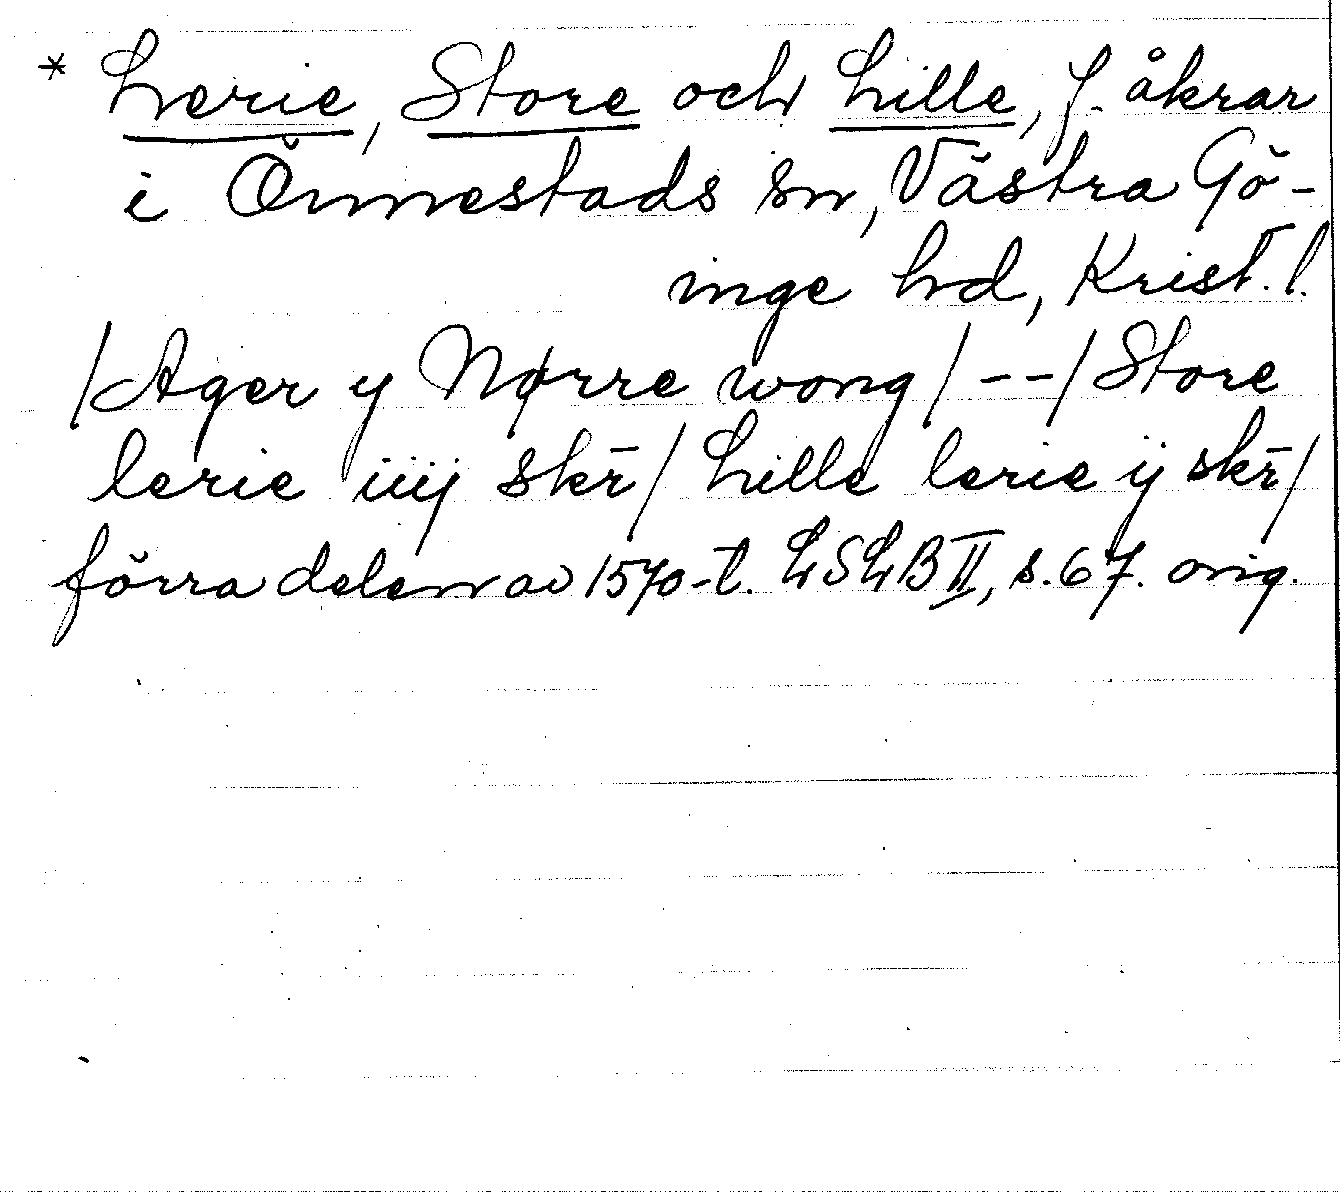 * Lerie, Store och Lille, f. åkrar
i Önnestads sn, Västra Gö-
inge hd, Krist. l.
/Ager y Nørre wong/--/Store
lerie iiij skr̄/ Lille lerie ij skr̄/
förra delen av 1570-t. LSLB II, s. 67. orig.